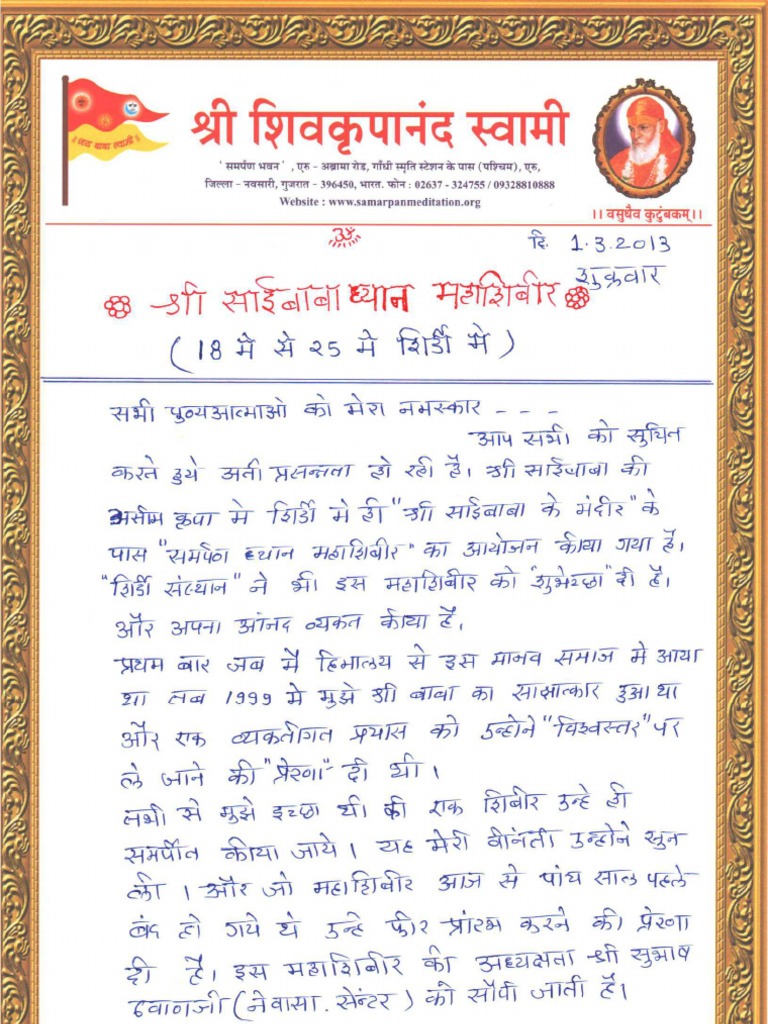 ।। जय बाबा स्वामी ।।
श्री शिवकृपानंद स्वामी
'समर्पण भवन' , एरु - अब्रामा रोड, गाँधी स्मृति स्टेशन के पास (पश्चिम), एरु,
जिल्ला - नवसारी, गुजरात - 396450, भारत. फोन : 02637 - 324755 / 09328810888
Website : www.samarpanmeditation.org
।। वसुधैव कुटुंबकम् ।।
ॐ
दि. 1.3.2013
शुक्रवार
श्री साईबाबा ध्यान महाशिबीर
(18 मे से 25 मे शिर्डी मे)
सभी पुण्यआत्माओ को मेरा नमस्कार - - -
आप सभी को सुचित
करते हुये अती प्रसन्नता हो रही है। श्री साईबाबा की
असीम कृपा मे शिर्डी मे ही "श्री साईबाबा के मंदीर" के
पास "समर्पण ध्यान महाशिबीर" का आयोजन कीया गया है।
"शिर्डी संस्थान" ने भी इस महाशिबीर को "शुभेच्छा" दी है।
और अपना आंनद व्यकत कीया है।
प्रथम बार जब मै हिमालय से इस मानव समाज मे आया
था तब 1999 मे मुझे श्री बाबा का साक्षात्कार हुआ था
और एक व्यकतीगत प्रयास को उन्होने "विश्वस्तर" पर
ले जाने की "प्रेरणा" दी थी।
तभी से मुझे इच्छा थी की एक शिबीर उन्हे ही
समर्पीत कीया जाये। यह मेरी वीनंती उन्होने सुन
ली। और जो महाशिबीर आज से पांच साल पहले
बंद हो गये थे उन्हे फीर प्रांरभ करने की प्रेरणा
दी है। इस महाशिबीर की अध्यक्षता श्री सुभाष
(नेवासा. सेंटर) को सौपी जाती है।